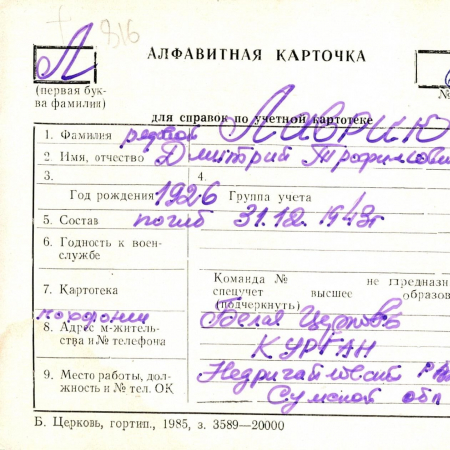 816
Л
АЛФАВИТНАЯ КАРТОЧКА
(первая бук-
ва фамилии)
№
для справок по учетной картотеке
1. Фамилия рядовой Лаврик
2. Имя, отчество Дмитрий Трофимови
3. 4.
Год рождения 1926 Группа учета
5. Состав погиб 31.12.1943г
6. Годность к воен-
службе
7. Картотека
Команда № не предназн
спецучет высшее образов
(подчеркнуть)
похоронен Белая Церковь
8. Адрес м-житель-
ства и № телефона
КУРГАН
9. Место работы, дол-
жность и № тел. ОК
Недригайловский р
Сумской обл
Б. Церковь, гортип., 1985, з. 3589—20000